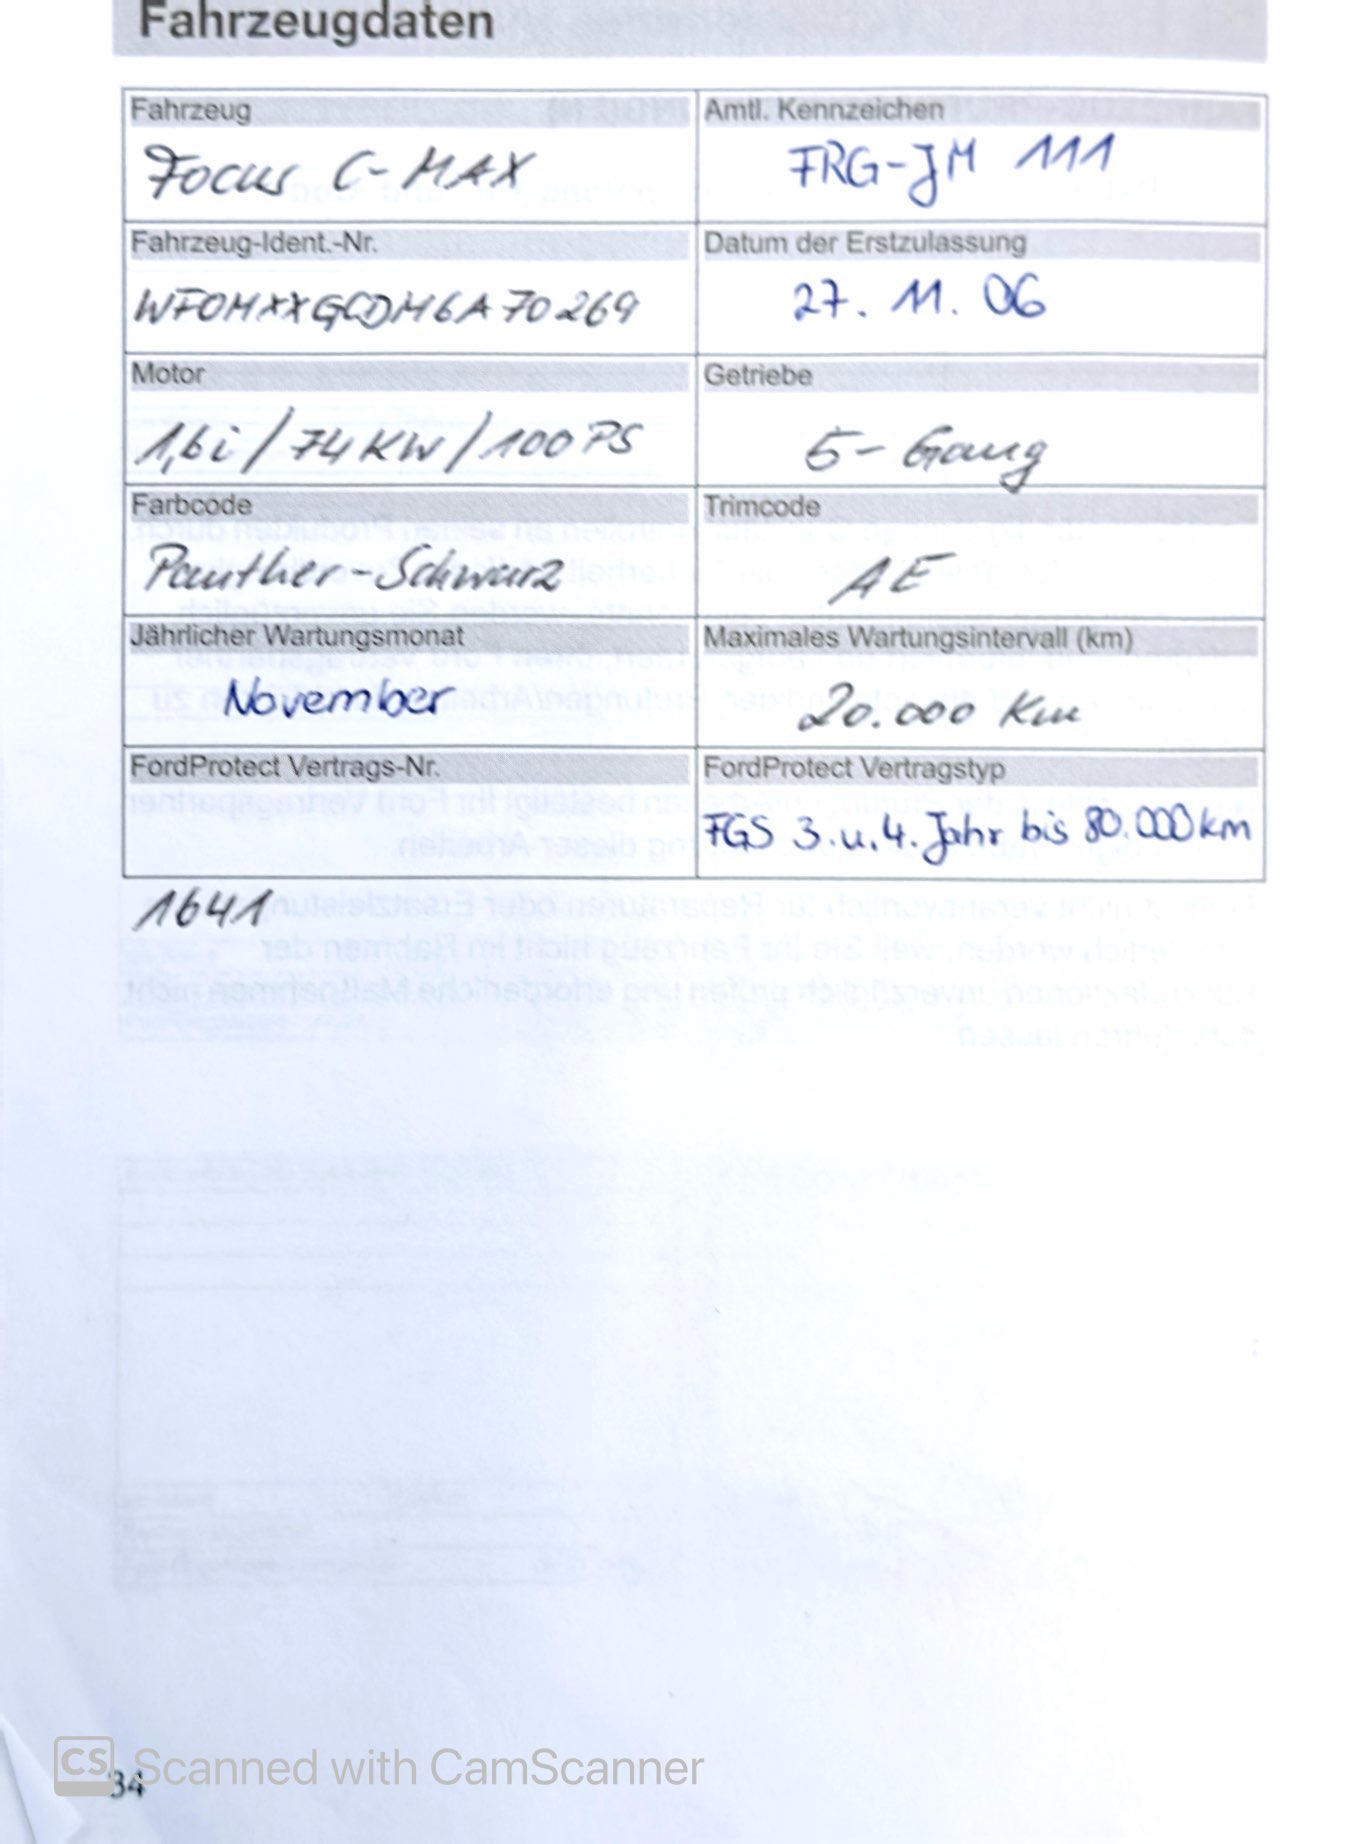 Fahrzeugdaten
Fahrzeug
Amtl. Kennzeichen
Focus C-MAX
FRG-JM 111
Fahrzeug-Ident.-Nr.
Datum der Erstzulassung
WF0MXXGCDM6A70269
27. 11. 06
Motor
Getriebe
1,6i / 74 KW / 100 PS
5-Gang
Farbcode
Trimcode
Panther-Schwarz
AE
Jährlicher Wartungsmonat
Maximales Wartungsintervall (km)
November
20.000 Km
FordProtect Vertrags-Nr.
FordProtect Vertragstyp
FGS 3. u. 4. Jahr bis 80.000 km
1641
CS Scanned with CamScanner
34